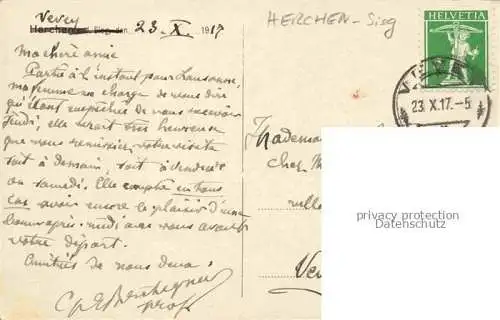 Vevey
Herchen a. Sieg, den 23 X. 1917
HERCHEN-Sieg
HELVETIA
23.X.17.-5
Ma chère amie
Partie à l'instant pour Lausanne,
ma femme me charge de vous dire
qu'étant empêchée de vous recevoir
jeudi, elle serait très heureuse
que vous remissiez votre visite
soit à demain, soit à vendredi
ou samedi. Elle compte en tous
cas avoir encore le plaisir d'une
bonne après-midi avec vous avant
votre départ.
Amitiés de nous deux.
prof.
Mademoi
chez M
ruelle
Ve
privacy protection
Datenschutz